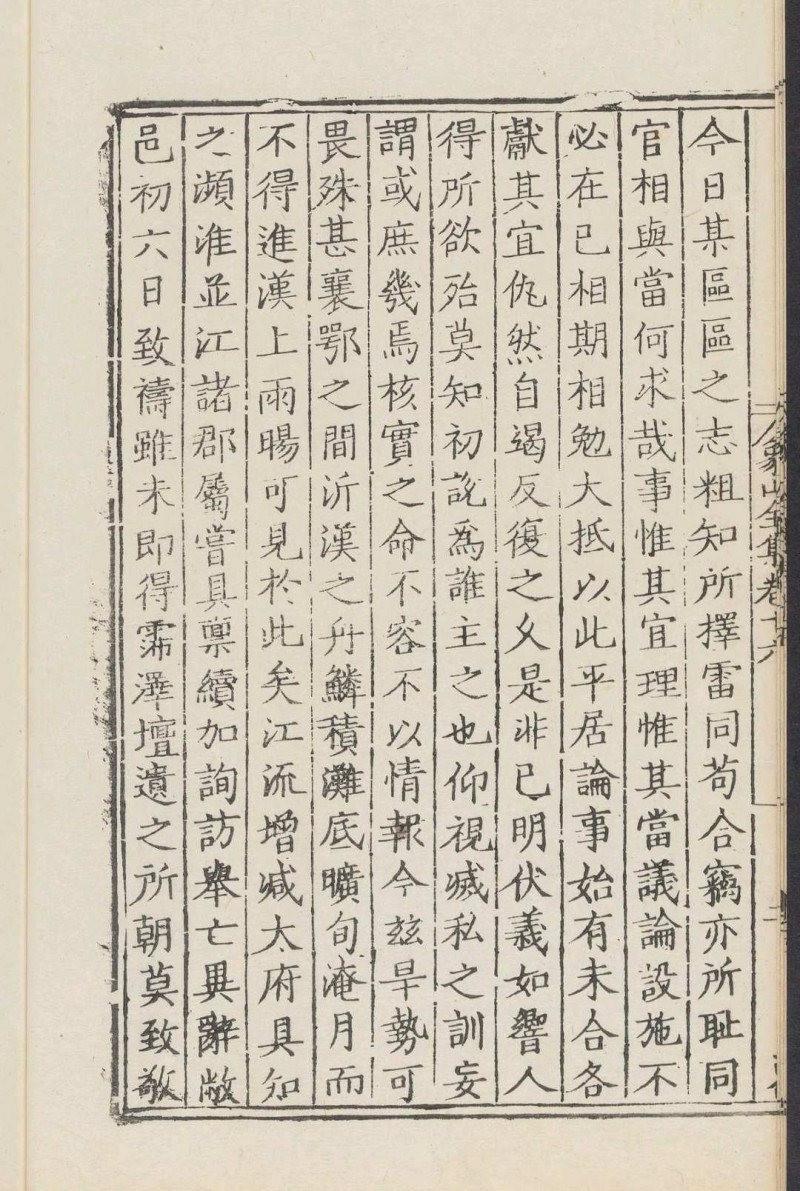 今日某區區之志粗知所擇雷同茍合竊亦所恥同
官相與當何求哉事惟其宜理惟其當議論設施不
必在已相期相勉大抵以此平居論事始有未合各
獻其宜仇然自竭反復之乆是非已明伏義如響人
得所欲殆莫知初說爲誰主之也仰視臧私之訓妄
謂或庶幾焉核實之命不容不以情報今兹旱勢可
畏殊甚襄鄂之間沂漢之舟鱗積灘底曠旬淹月而
不得進漢上雨暘可見於此矣江流增減大府具知
之瀕淮並江諸郡屬嘗具禀續加詢訪舉亡異辭敝
邑初六日致禱雖未即得霈澤壇遺之所朝莫致敬
象山全集卷十六